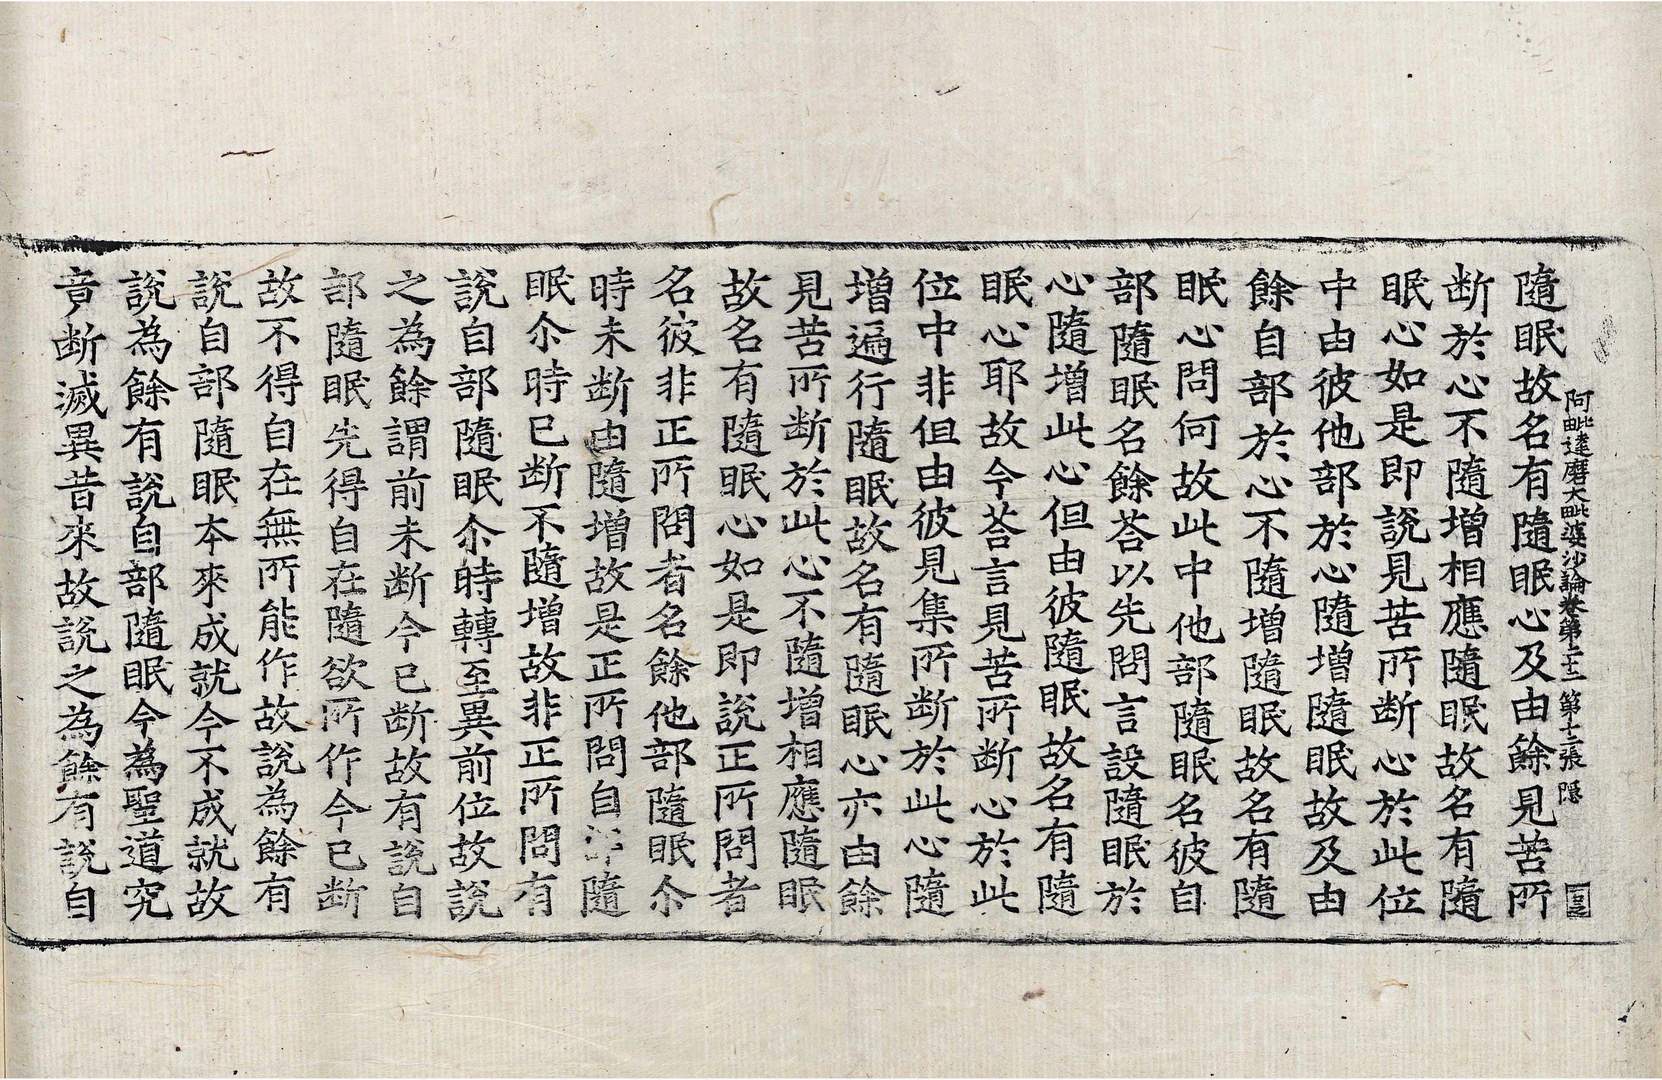 阿毗達磨大毗婆沙論卷第二十二 第十二張 隱
隨眠故名有隨眠心及由餘見苦所
断於心不隨增相應隨眠故名有隨
眠心如是即說見苦所断心於此位
中由彼他部於心隨增隨眠故及由
餘自部於心不隨增隨眠故名有隨
眠心問何故此中他部隨眠名彼自
部隨眠名餘荅以先問言設隨眠於
心隨增此心但由彼隨眠故名有隨
眠心耶故今荅言見苦所断心於此
位中非但由彼見集所断於此心隨
增遍行隨眠故名有隨眠心亦由餘
見苦所断於此心不隨增相應隨眠
故名有隨眠心如是即說正所問者
名彼非正所問者名餘他部隨眠尒
時未断由隨增故是正所問自部隨
眠尒時已断不隨增故非正所問有
說自部隨眠尒時轉至異前位故說
之為餘謂前未断今已断故有說自
部隨眠先得自在隨欲所作今已断
故不得自在無所能作故說為餘有
說自部隨眠本來成就今不成就故
說為餘有說自部隨眠今為聖道究
竟断滅異昔來故說之為餘有說自